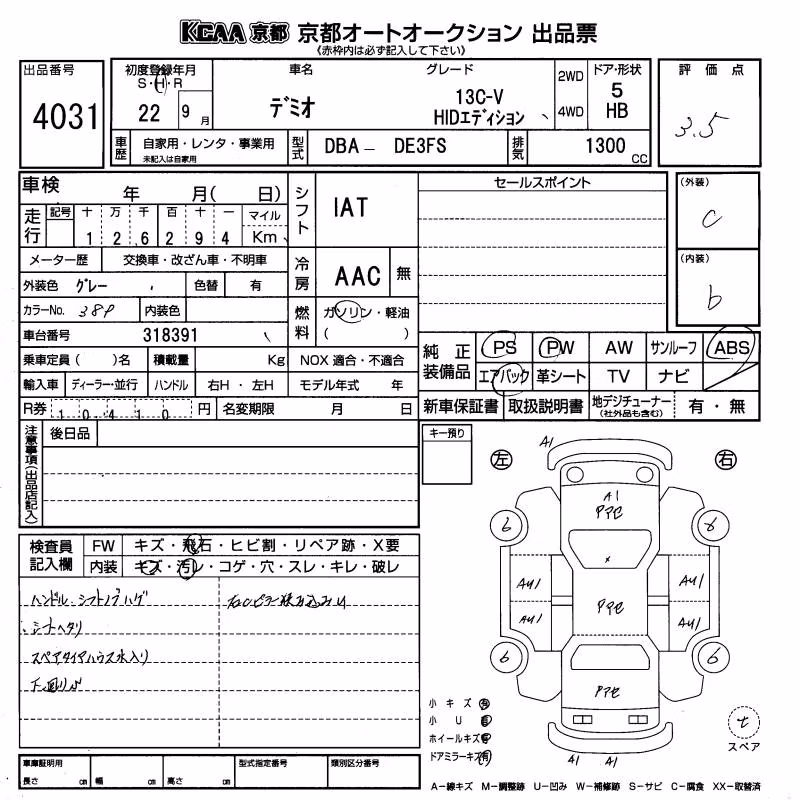 KCAA 京都 京都オートオークション 出品票
《赤枠内は必ず記入して下さい》
出品番号
4031
初度登録年月
S・H・R
22 9 月
車名
デミオ
グレード
13C-V
HIDエディション
2WD
4WD
ドア・形状
5
HB
評価点
3.5
車歴
自家用・レンタ・事業用
未記入は自家用
型式
DBA－ DE3FS
排気
1300
CC
車検
年 月( 日)
走行
記号 十 万 千 百 十 一 マイル
1 2 6 2 9 4 Km
メーター歴 交換車・改ざん車・不明車
外装色 グレー 色替 有
カラーNo. 38P 内装色
車台番号 318391
乗車定員 ( )名 積載量 Kg
輸入車 ディーラー・並行 ハンドル 右H・左H
R券 10410 円 名変期限 月 日
シフト
IAT
冷房
AAC 無
燃料
ガソリン・軽油
( )
NOX 適合・不適合
モデル年式 年
セールスポイント
(外装)
c
(内装)
b
純正装備品
PS PW AW サンルーフ ABS
エアバック 革シート TV ナビ
新車保証書 取扱説明書 地デジチューナー (社外品も含む) 有・無
注意事項(出品店記入)
後日品
キー預り
検査員記入欄
FW キズ・飛石・ヒビ割・リペア跡・X要
内装 キズ・汚レ・コゲ・穴・スレ・キレ・破レ
ハンドル シフトノブハゲ
シートヘタリ
スペアタイヤハウス水入り
下廻りサビ
左 右
A1
A1
アアセ
6 6
×
AU1 AU1
アアセ
AU1 AU1
6 6
アアセ
A1 A1
小キズ 有
小U 有
ホイールキズ 有
ドアミラーキズ(有)
t
スペア
A－線キズ M－調整跡 U－凹み W－補修跡 S－サビ C－腐食 XX－取替済
車庫証明用
長さ cm 幅 cm 高さ cm
型式指定番号
類別区分番号